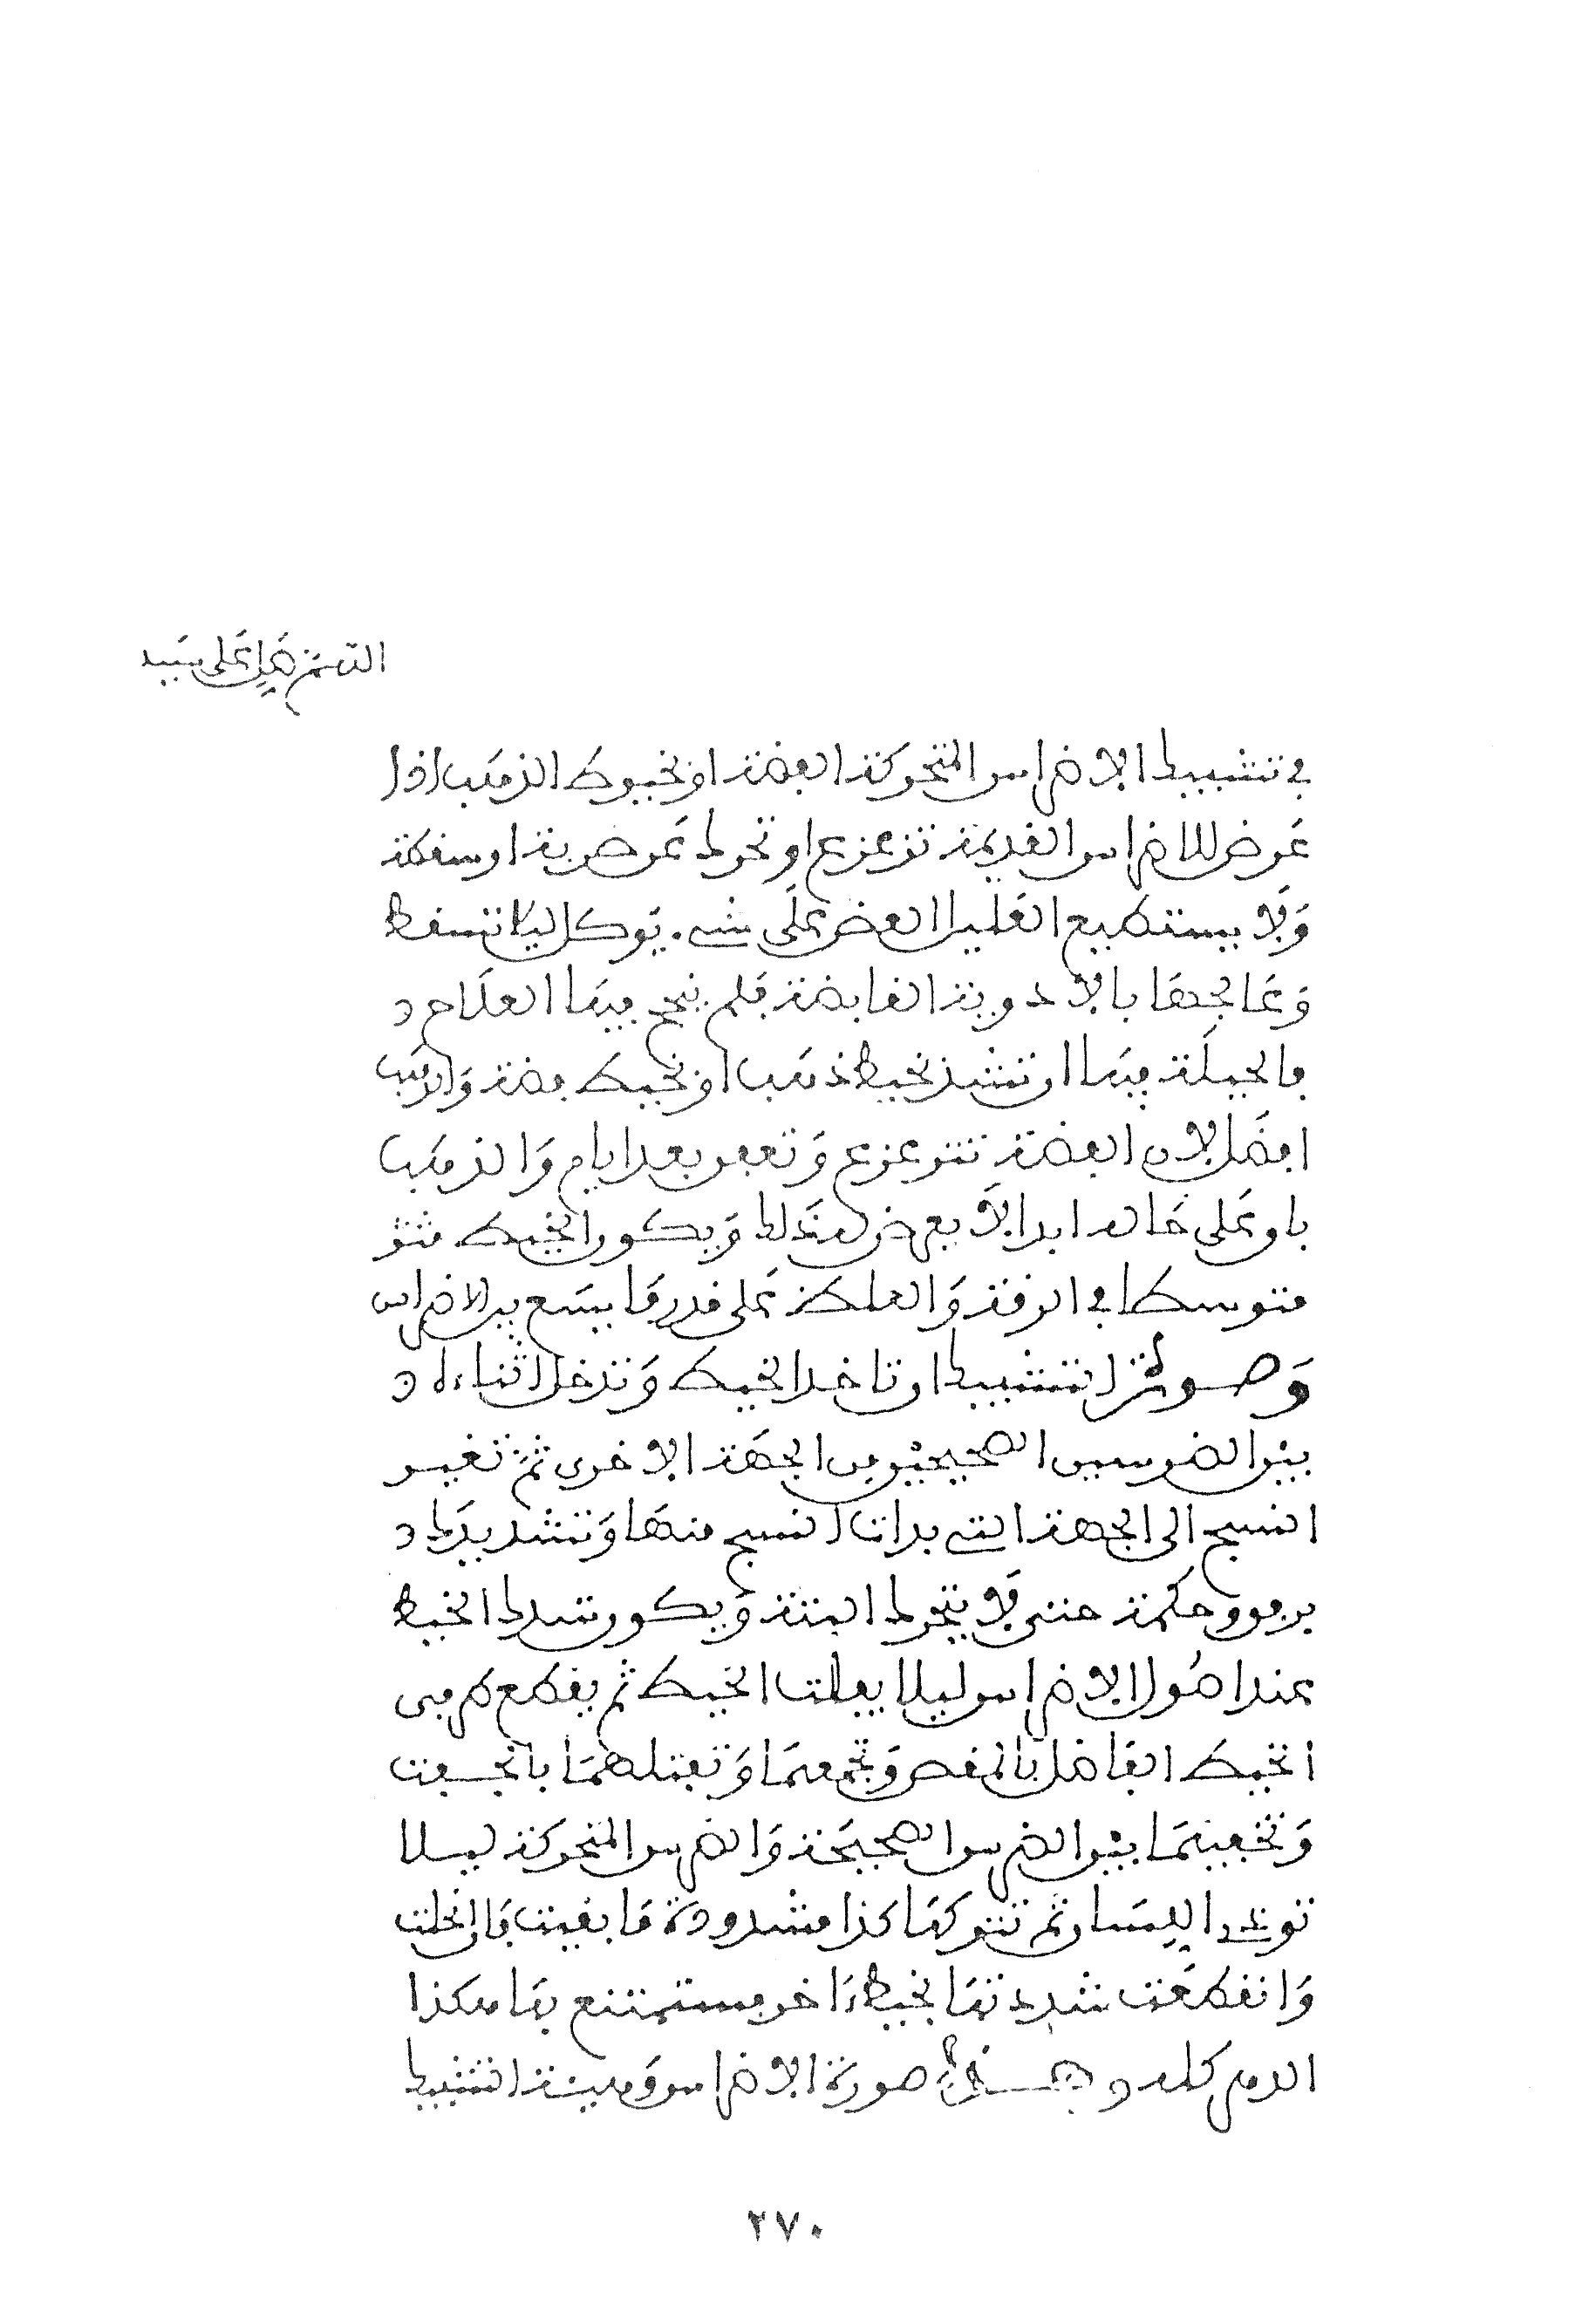 اللهم صل على سيد
في تشبيك الاضراس المتحركة الفضة او بخيوط الذهب اذا
عرض للاضراس القديمة تزعزع او تحرك عن ضربة او سقطة
ولا يستطيع العليل العض على شيء يوكل ليلا تسقط
وعالجتها بالادوية القابضة فلم ينجح فيها العلاج
فالحيلة فيها ان تشد بخيط ذهب او بخيط فضة والذهب
افضل لان الفضة تتزعزع وتعفن بعد ايام والذهب
باق على حاله ابدا لا يعرض له ذلك ويكون الخيط متو
متوسطا في الرقة والغلظ على قدر ما يسع بين الاضراس
وصورة التشبيك ان تاخذ الخيط وتدخل اثناءه
بين الضرسين الصحيحين من الجهة الاخرى ثم تعيد
النسج الى الجهة التي بدات النسج منها وتشد يدك
برفق وحكمة حتى لا يتحرك البتة ويكون شدك الخيط
عند اصول الاضراس ليلا يفلت الخيط ثم يقطع طرفي
الخيط الفاضل بالمقص وتجمعهما وتفتلهما بالجفت
وتخفيهما بين الضرس الصحيحة والضرس المتحركة ليلا
توذي اللسان ثم تتركها كذا مشدودة ما بقيت فان انحلت
وانقطعت شددتها بخيط ءاخر فيستمتع بها هكذا
الدهر كله وهذه صورة الاضراس وهيئة التشبيك
٢٧٠